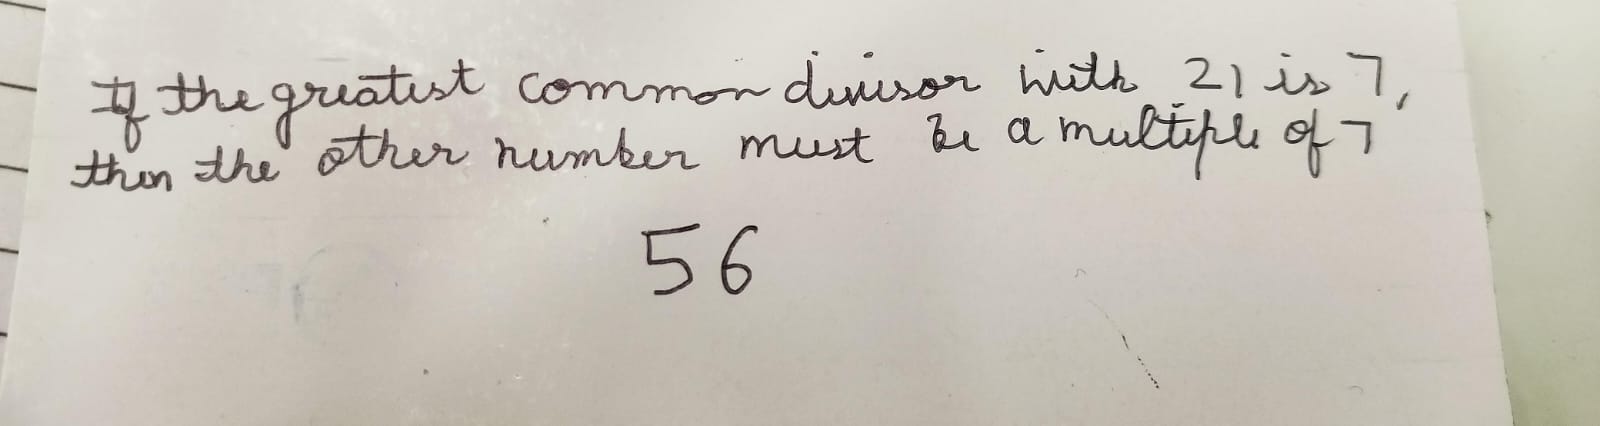 If the greatest common divisor with 21 is 7,
then the other number must be a multiple of 7
56